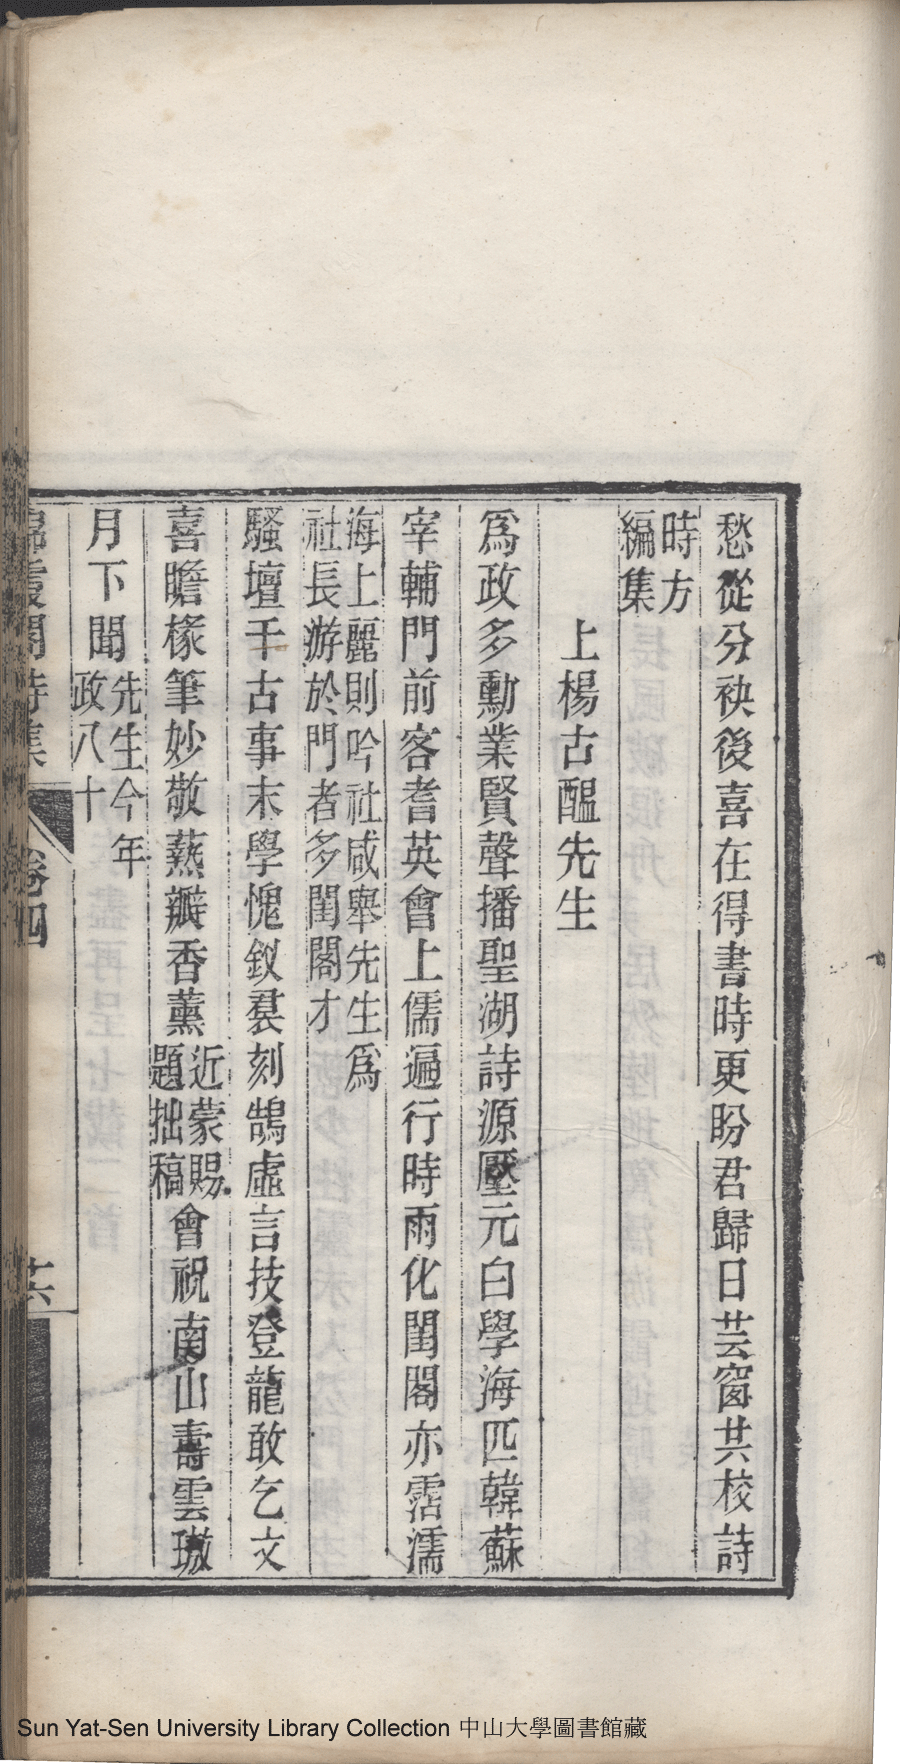 愁從分袂後喜在得書時更盼君歸日芸窗共校詩
時方
編集
上楊古醞先生
爲政多勳業賢聲播聖湖詩源壓元白學海匹韓蘇
宰輔門前客耆英會上儒遍行時雨化閨閣亦霑濡
海上麗則吟社咸舉先生爲
社長游於門者多閨閣才
騷壇千古事末學愧釵裙刻鵠虛言技登龍敢乞文
喜瞻椽筆妙敬爇瓣香薰
近蒙賜
題拙稿
會祝南山壽雲璈
月下聞
先生今年
政八十
霞閣詩集
卷四
十六
Sun Yat-Sen University Library Collection 中山大學圖書館藏